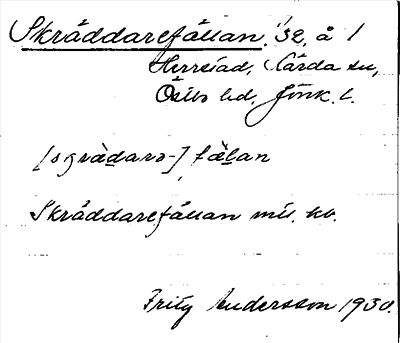 Skräddarefällan, '32, å 1
Herrestad, Kärda sn,
Östbo hd, Jönk. l.
[sgrädarə-] fälan
Skräddarefällan mil. kb.
Fritz Andersson 1930.